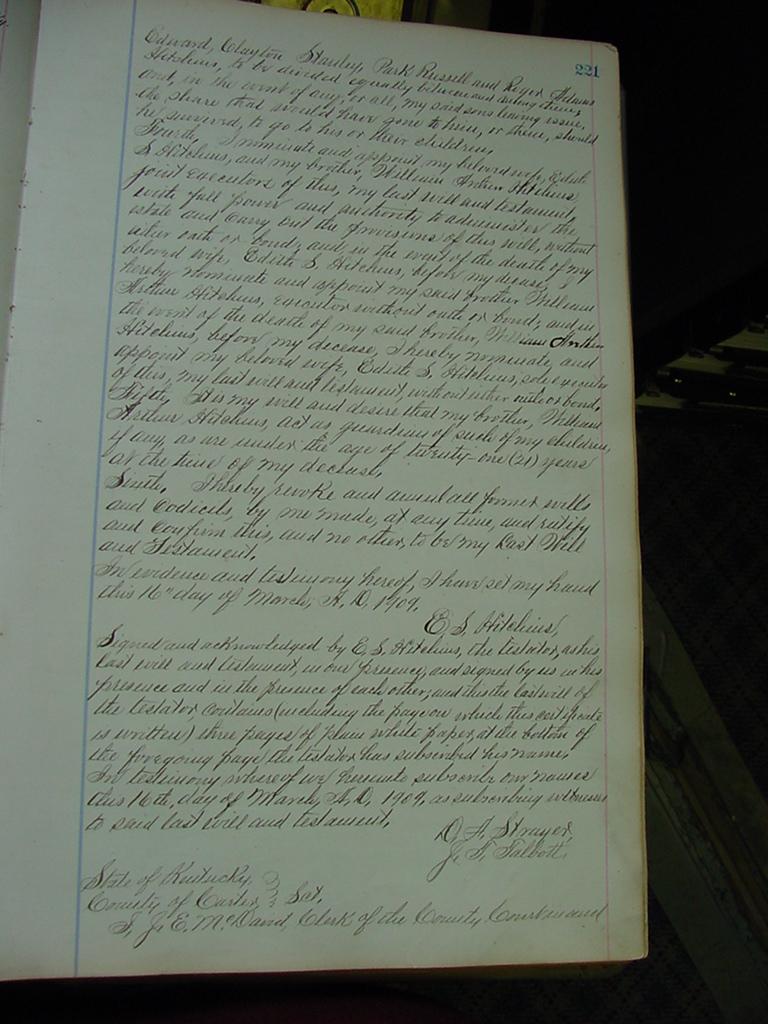 221
Edward, Clayton Stanley, Park Russell and Roger Adams
Hitchins, to be divided equally between and among them,
and, in the event of any, or all, my said sons leaving issue,
the share that would have gone to him, or them, should
he survived, to go to his or their children.
Fourth, I nominate and appoint my beloved wife, Edith
S. Hitchins, and my brother, William Arthur Hitchins,
joint executors of this, my last will and testament,
with full power and authority to administer the
estate and carry out the provisions of this will, without
either oath or bond; and in the event of the death of my
beloved wife, Edith S. Hitchins, before my decease, I
hereby nominate and appoint my said brother William
Arthur Hitchins, executor without oath or bond; and in
the event of the death of my said brother, William Arthur
Hitchins, before my decease, I hereby nominate, and
appoint my beloved wife, Edith S. Hitchins, sole executor
of this, my last will and testament, without either oath or bond.
Fifth, It is my will and desire that my brother, William
Arthur Hitchins, act as guardian of such of my children,
if any, as are under the age of twenty-one (21) years
at the time of my decease.
Sixth, I hereby revoke and annul all former wills
and Codicils, by me made, at any time, and ratify
and confirm this, and no other, to be my Last Will
and Testament.
In evidence and testimony hereof, I have set my hand
this 16" day of March, A.D. 1909.
E. S. Hitchins,
Signed and acknowledged by E. S. Hitchins, the testator, as his
last will and testament, in our presence, and signed by us in his
presence and in the presence of each other; and this the last will of
the testator, contains (including the page on which this certificate
is written) three pages of plain white paper, at the bottom of
the foregoing page the testator has subscribed his name.
In testimony whereof we hereunto subscribe our names
this 16th, day of March, A.D. 1909, as subscribing witnesses
to said last will and testament.
D. A. Strayer,
J. F. Talbott,
State of Kentucky,
County of Carter, } Sct.
I, J. E. McDavid, Clerk of the County Court in and